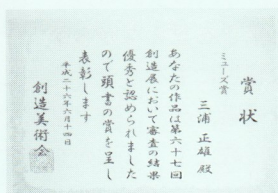 賞状
ミューズ賞
三浦正雄殿
あなたの作品は第六十七回
創造展において審査の結果
優秀と認められました
ので頭書の賞を呈し
表彰します
平成二十六年六月十四日
創造美術会